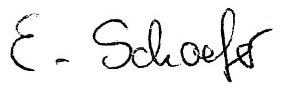 E. Schaefer